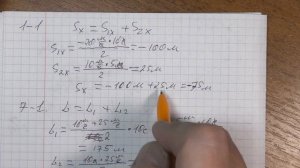 1-1 Sx = S1x + S2x
S1x = -20 м/с · 10с / 2 = -100 м
S2x = 10 м/с · 5с / 2 = 25 м
Sx = -100 м + 25 м = -75 м
7-1 L = L1 + L2
L1 = 10 м/с + 25 м/с / 2 · 10с
= 175 м
L2 =